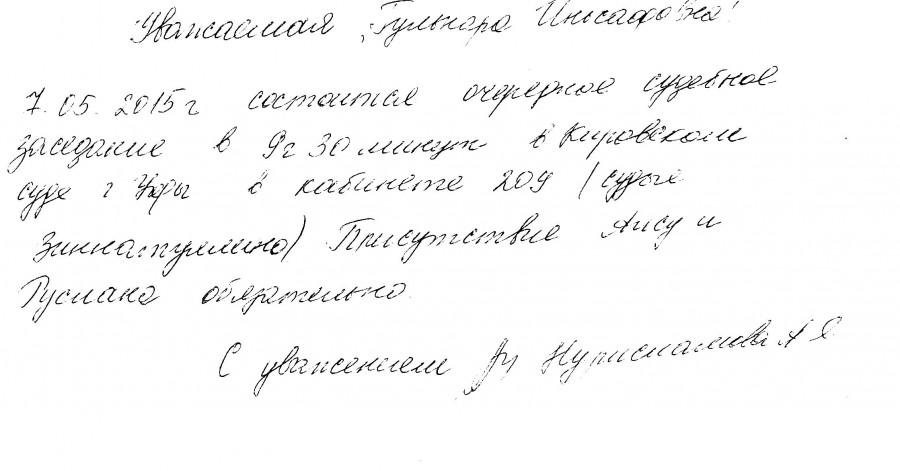 Уважаемая Гульнара Инсафовна!
7.05.2015г состоится очередное судебное
заседание в 9ч 30 минут в Кировском
суде г Уфы в кабинете 209 (судья
Зиннатуллина) Присутствие Алсу и
Руслана обязательно.
С уважением Нурисламова А Я